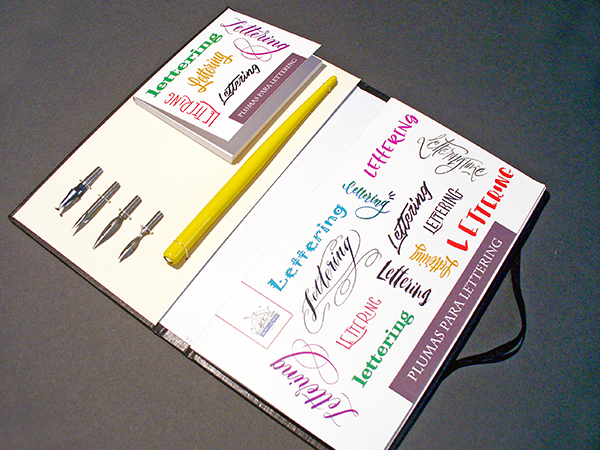 Lettering
lettering
Lettering
Lettering
LETTERING
PLUMAS PARA LETTERING
LETTERING
Lettering
LETTERING
Lettering
LETTERING
Lettering
Lettering
Lettering
Lettering
Lettering
LETTERING
lettering
Lettering
PLUMAS PARA LETTERING